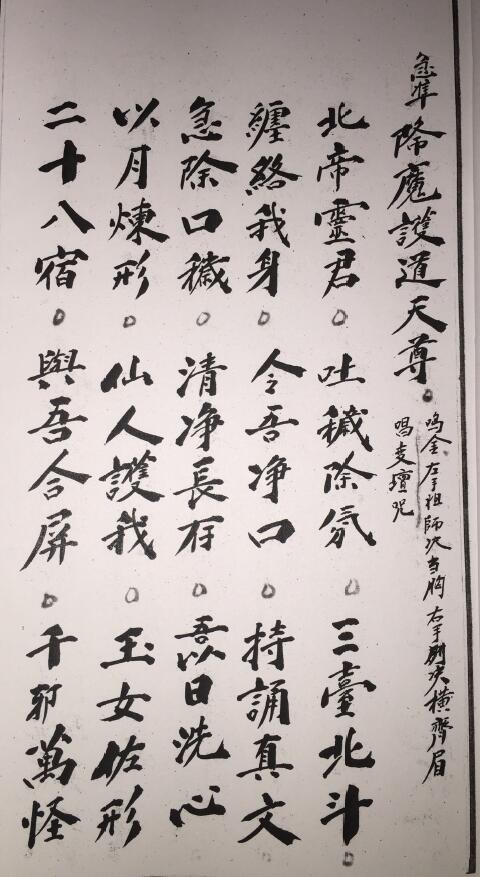 急准 降魔護道天尊。
鸣金 左手祖師訣当胸 右手劍訣横齊眉
唱变壇咒
北帝靈君。吐穢除氛。三臺北斗。
纏絡我身。令吾净口。持誦真文
急除口穢。清净長存。吾以日洗心
以月煉形。仙人護我。玉女佐形
二十八宿。與吾合屏。千邪萬怪